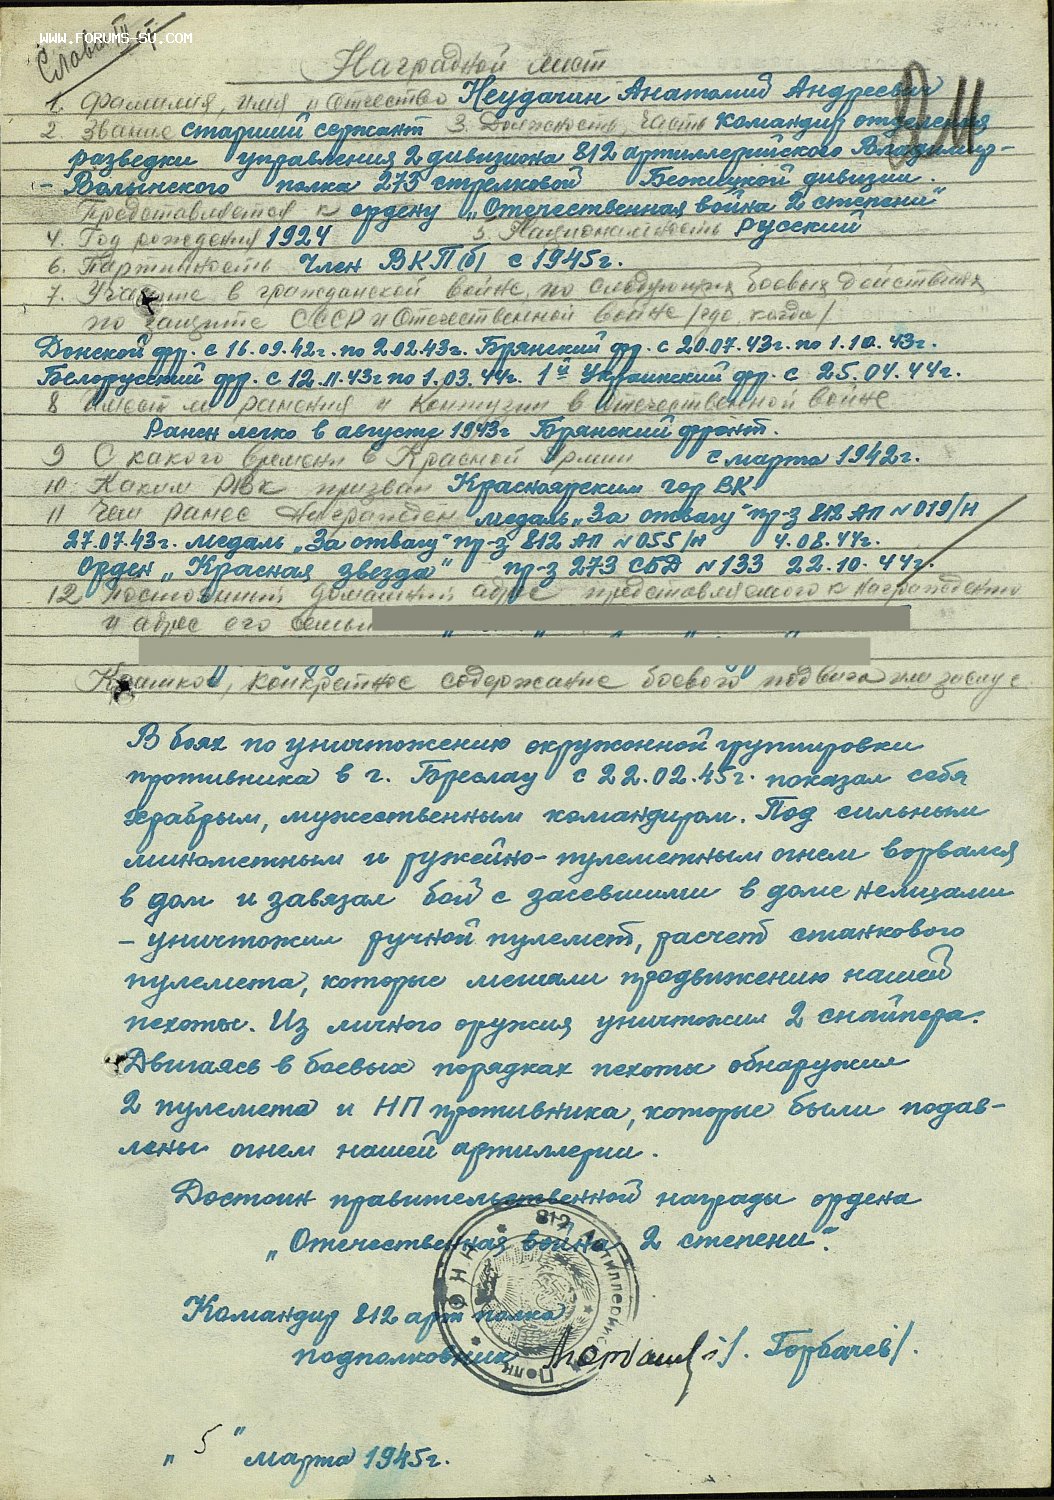 www.forums-su.com
Наградной лист
1. Фамилия, имя и Отчество Неудачин Анатолий Андреевич
2. Звание старший сержант 3. Должность, часть командир отделения
разведки управления 2 дивизиона 812 артиллерийского Владимир-
- Волынского полка 273 стрелковой Бежицкой дивизии.
Представляется к ордену „Отечественная война 2 степени"
4. Год рождения 1924 5. Национальность русский
6. Партийность Член ВКП(б) с 1945г.
7. Участие в гражданской войне, по следующих боевых действиях
по защите СССР и Отечественной войне /где, когда/
Донской фр. с 16.09.42г. по 2.02.43г. Брянский фр. с 20.07.43г. по 1.10.43г.
Белорусский фр. с 12.11.43г по 1.03.44г. 1й Украинский фр. с 25.04.44г.
8 Имеет ли ранения и контузии в отечественной войне
Ранен легко в августе 1943г Брянский фронт.
9 С какого времени в Красной Армии с марта 1942г.
10 Каким РВК призван Красноярским гор ВК
11 Чем ранее награжден медаль „За отвагу" пр-з 812 АП №019/н
27.07.43г. медаль „За отвагу" пр-з 812 АП №055/н 4.08.44г.
Орден „Красная звезда" пр-з 273 СБД №133 22.10.44г.
12 Постоянный домашний адрес представляемого к награждению
и адрес его семьи
Краткое, конкретное содержание боевого подвига или заслуг
В боях по уничтожению окружонной группировки
противника в г. Бреслау с 22.02.45г. показал себя
храбрым, мужественным командиром. Под сильным
минометным и ружейно-пулеметным огнем ворвался
в дом и завязал бой с засевшими в доме немцами
- уничтожил ручной пулемет, расчет станкового
пулемета, которые мешали продвижению нашей
пехоты. Из личного оружия уничтожил 2 снайпера.
Двигаясь в боевых порядках пехоты обнаружил
2 пулемета и НП противника, которые были подав-
лены огнем нашей артиллерии.
Достоин правительственной награды ордена
„Отечественная война 2 степени".
Командир 812 арт полка
подполковник /Горбачев/.
„5" марта 1945г.